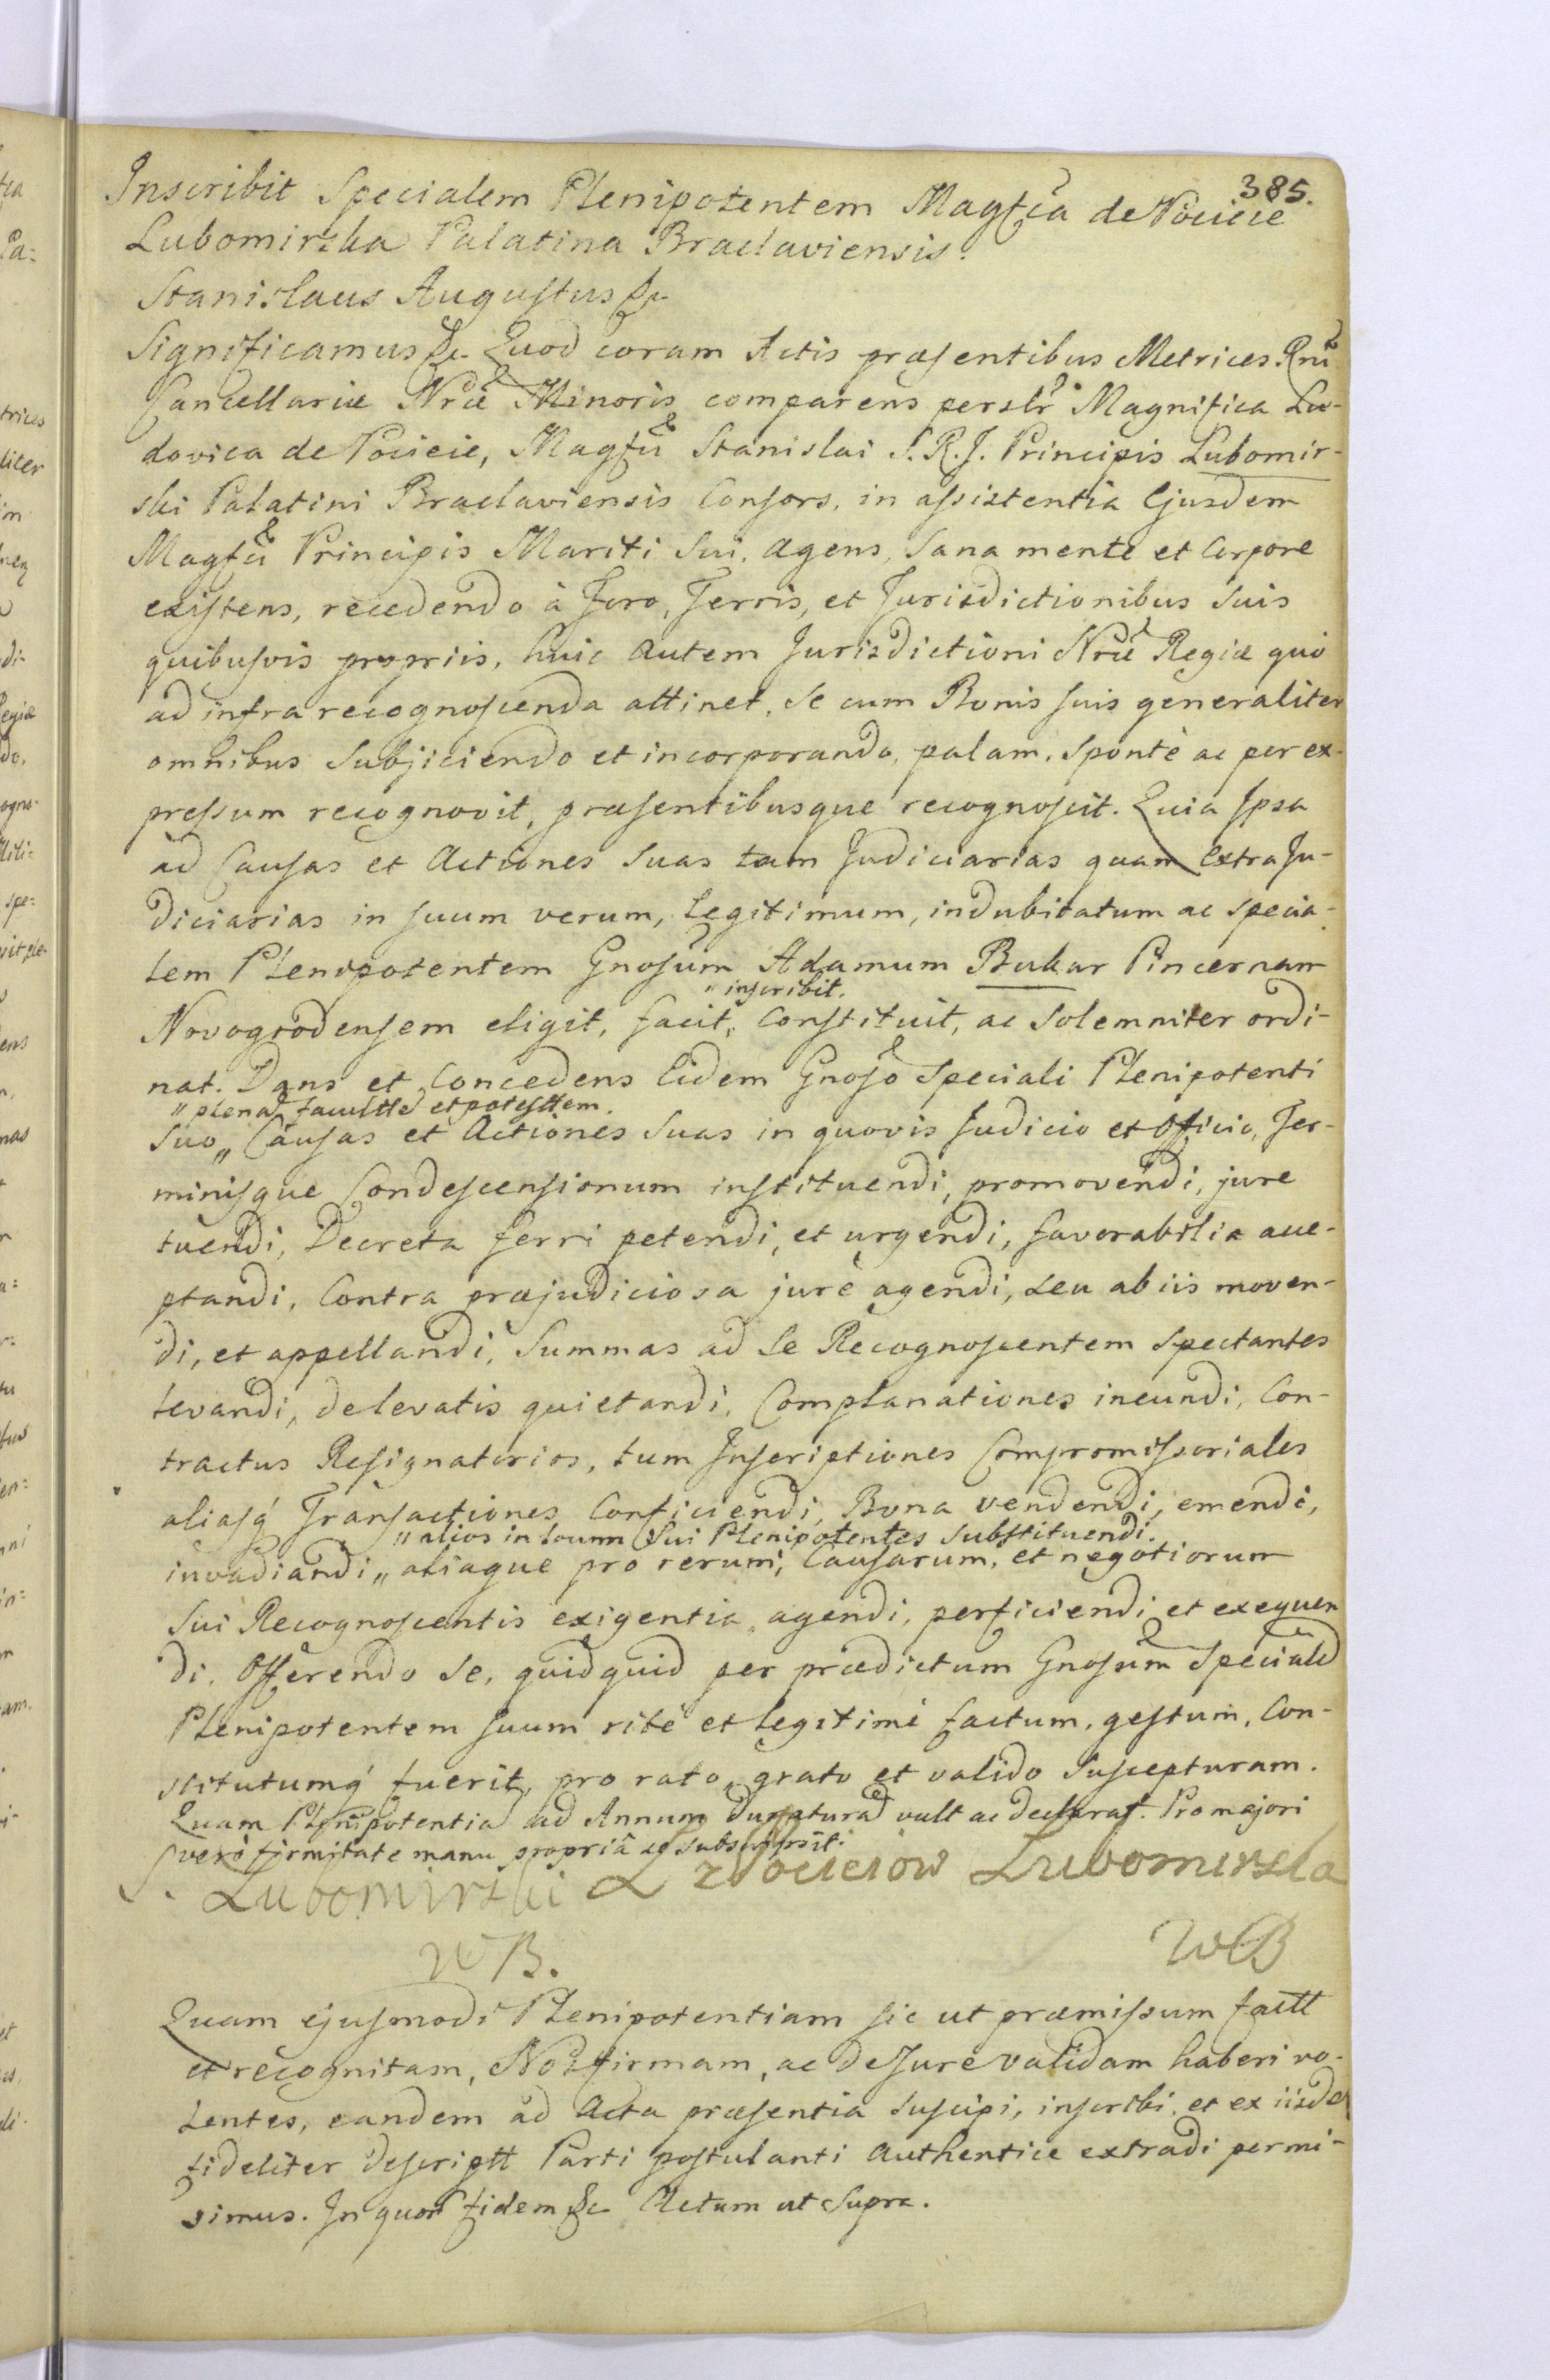 385.
Inscribit Specialem Plenipotentem Magfca de Pocieie
Lubomirska Palatina Braclaviensis.
Stanislaus Augustus &c
Significamus &c Quod coram Actis præsentibus Metrices Rni
Cancellariæ Nræ Minoris comparens persLr Magnifica Lu-
dovica de Pocieie, Magfci Stanislai S. R. J. Principis Lubomir-
ski Palatini Braclaviensis Consors, in assistentia Ejusdem
Magfci Principis Mariti Sui, Agens, Sana mente et Corpore
existens, recedendo à Foro, Terris, et Jurisdictionibus Suis
quibusvis propriis, huic autem Jurisdictioni Nræ Regiæ quo
ad infra recognoscenda attinet, Se cum Bonis suis generaliter
omnibus Subjiciendo et incorporando, palam, Spontè ac per ex-
pressum recognovit, præsentibusque recognoscit. Quia Ipsa
ad Causas et Actiones Suas tam Judiciarias quam Extra Ju-
diciarias in suum verum, Legitimum, indubitatum ac Specia-
lem Plenipotentem Gnosum Adamum Bukar Pincernam
" inscribit.
Novogrodensem eligit, facit, Constituit, ac Solemniter ordi-
nat. Dans et Concedens Eidem Gnoso Speciali Plenipotenti
" plenā facultte et potesttem.
Suo „ Causas et Actiones Suas in quovis Judicio et Officio, Ter-
minisque Condescensionum instituendi, promovendi, jure
tuendi, Decreta ferri petendi, et urgendi, favorabilia acce-
ptandi, Contra præjudiciosa jurè agendi, Seu ab iis moven-
di, et appellandi, Summas ad Se Recognoscentem Spectantes
levandi, de levatis quietandi, Complanationes ineundi, Con-
tractus Resignatorios, tum Inscriptiones Compromissoriales
aliasq́ Transactiones Conficiendi, Bona vendendi, emendi,
" alios in Locum Sui Plenipotentes Substituendi.
invadiandi „ aliaque pro rerum, Causarum, et negotiorum
Sui Recognoscentis exigentia, agendi, perficiendi et exequen
di. Offerendo Se, quidquid per prædictum Gnosum Speciale
Plenipotentem Suum ritè et Legitimè factum, gestum, Con-
stitutumq́ fuerit, pro rato, grato et valido Suscepturam.
Quam Plenipotentia ad Annum duratura vult ac declarat. Pro majori
vero firmitate manu propriâ se Subscripsit.
S. Lubomirski L z Pocieiow Lubomirska
WB. WB
Quam ejusmodi Plenipotentiam sic ut præmissum factt
et recognitam, Nos firmam, ac de Jure validam haberi vo-
lentes, eandem ad Acta præsentia Suscipi, inscribi, et ex iisde
fideliter descriptt Parti postulanti Authentice extradi permi-
simus. In quor fidem &c Actum ut Supra.